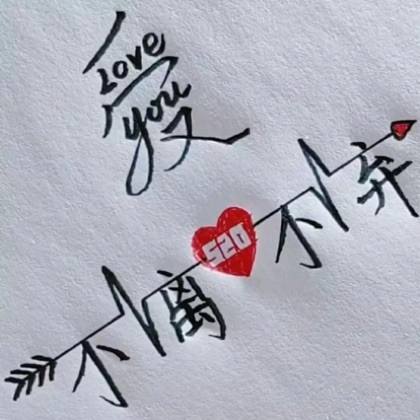 Love
you
爱
不离520不弃